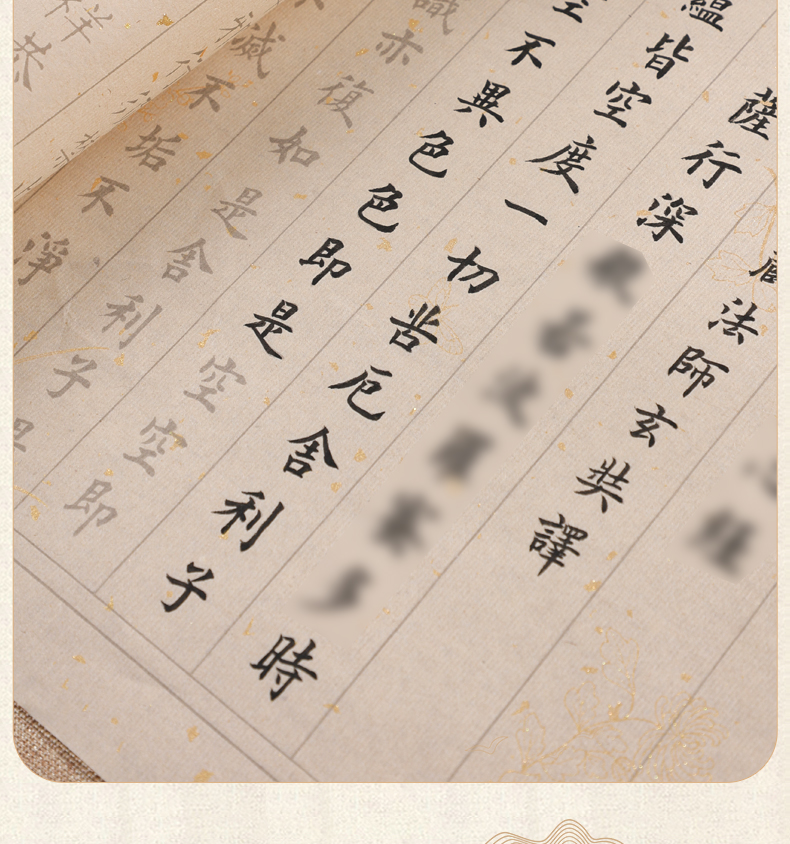 藏法師玄奘譯
薩行深時
蘊皆空度一切苦厄舍利子
空不異色色即是空空即
識亦復如是舍利子是
滅不垢不淨